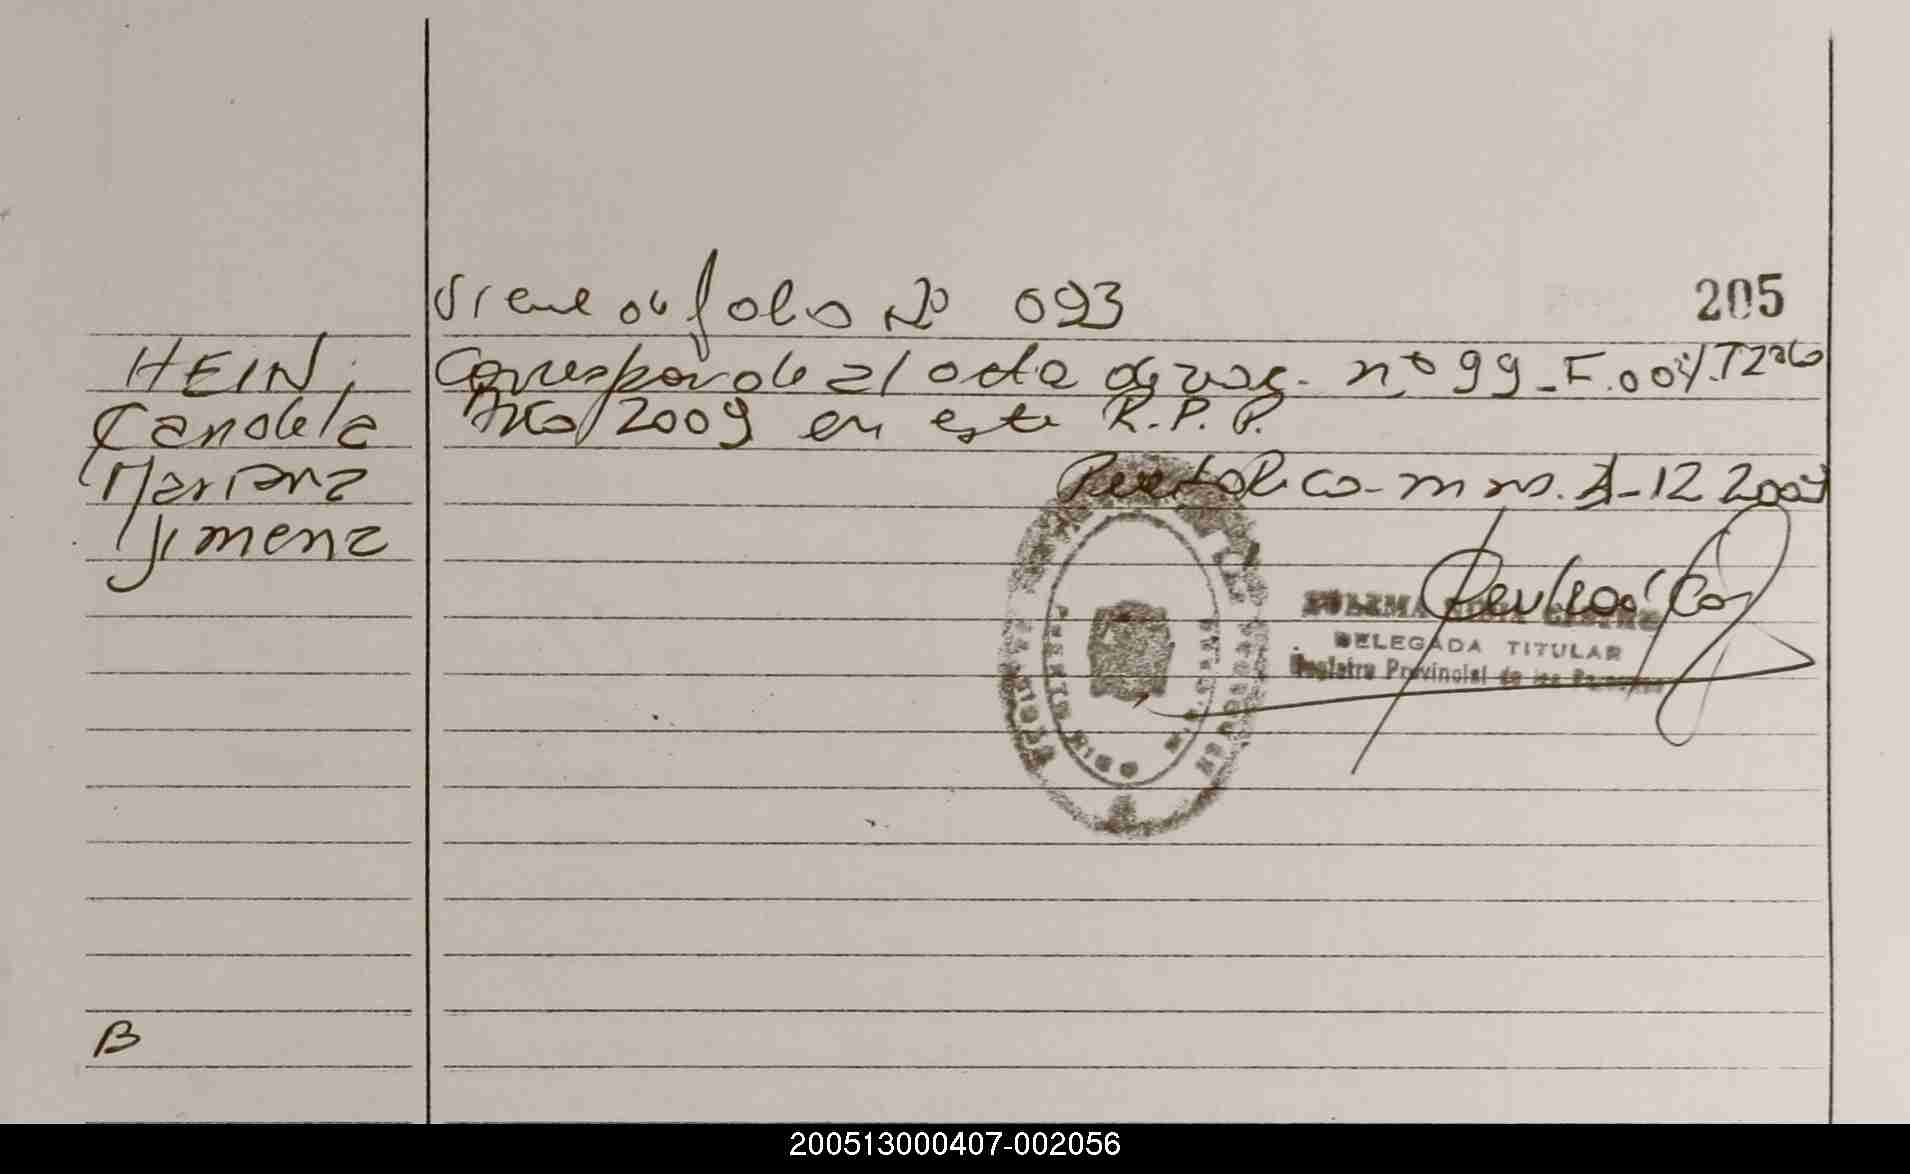 Viene de folio Nº 093
205
HEIN,
Corresponde al acta de nac. nº 99 - F.
Candela
Año 2009 en este R.P.P.
Mariana
Puerto Rico - mns. 1-12 2009
Jimena
DELEGADA TITULAR
Registro Provincial de las Personas
B
200513000407-002056